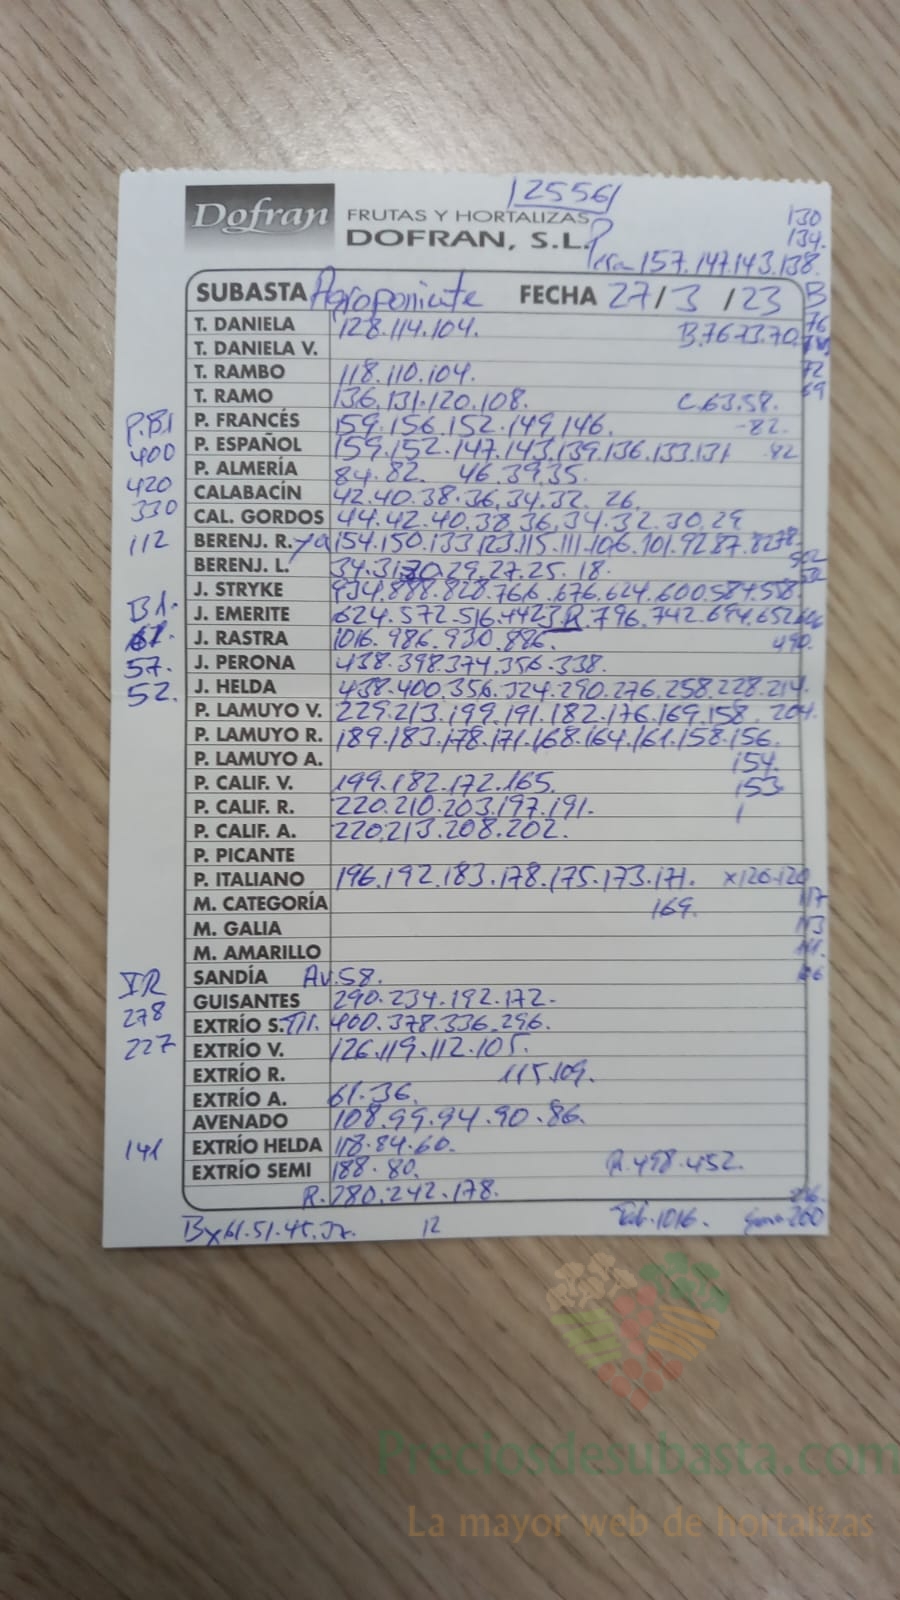 12556
130
Dofran FRUTAS Y HORTALIZAS
134.
DOFRAN, S.L.
Pera 157.147.143.138.
SUBASTA Agroponiente FECHA 27/3/23 B
T. DANIELA 128.114.104. B.76.73.70. 76
T. DANIELA V.
T. RAMBO 118.110.104. 72
T. RAMO 136.131.120.108. C.63.58. 69
P. FRANCÉS 159.156.152.149.146. -82.
P.B1
P. ESPAÑOL 159.152.147.143.139.136.133.131 82
400
P. ALMERÍA 84.82. 46.39.35.
420
CALABACÍN 42.40.38.36.34.32. 26.
330
CAL. GORDOS 44.42.40.38.36.34.32.30.29
112 BERENJ. R. ya 154.150.133.123.115.111.106.101.92.87.82.78.
BERENJ. L. 34.31.30.29.27.25.18.
J. STRYKE 934.888.828.766.676.624.600.584.558.
B1.
J. EMERITE 624.572.516.442 R.796.742.694.652.
61. J. RASTRA 1016.986.930.886. 490.
57. J. PERONA 438.398.374.356.338.
52. J. HELDA 438.400.356.324.290.276.258.228.214.
P. LAMUYO V. 229.213.199.191.182.176.169.158. 204.
P. LAMUYO R. 189.183.178.171.168.164.161.158.156.
P. LAMUYO A. 154.
P. CALIF. V. 199.182.172.165. 153
P. CALIF. R. 220.210.203.197.191.
P. CALIF. A. 220.213.208.202.
P. PICANTE
P. ITALIANO 196.192.183.178.175.173.171. x126.120
M. CATEGORÍA 169. 117
M. GALIA 113
M. AMARILLO 111.
SANDÍA Av.58. 106
GUISANTES 290.234.192.172.
278
EXTRÍO S. 400.378.336.296.
227 EXTRÍO V. 126.119.112.105.
EXTRÍO R. 115.109.
EXTRÍO A. 61.36.
AVENADO 108.99.94.90.86.
141 EXTRÍO HELDA 118.84.60.
EXTRÍO SEMI 188.80. R.498.452.
R.280.242.178.
Bx61.51.45. 12 Tab.1016. 260
Preciosdesubasta.com
La mayor web de hortalizas